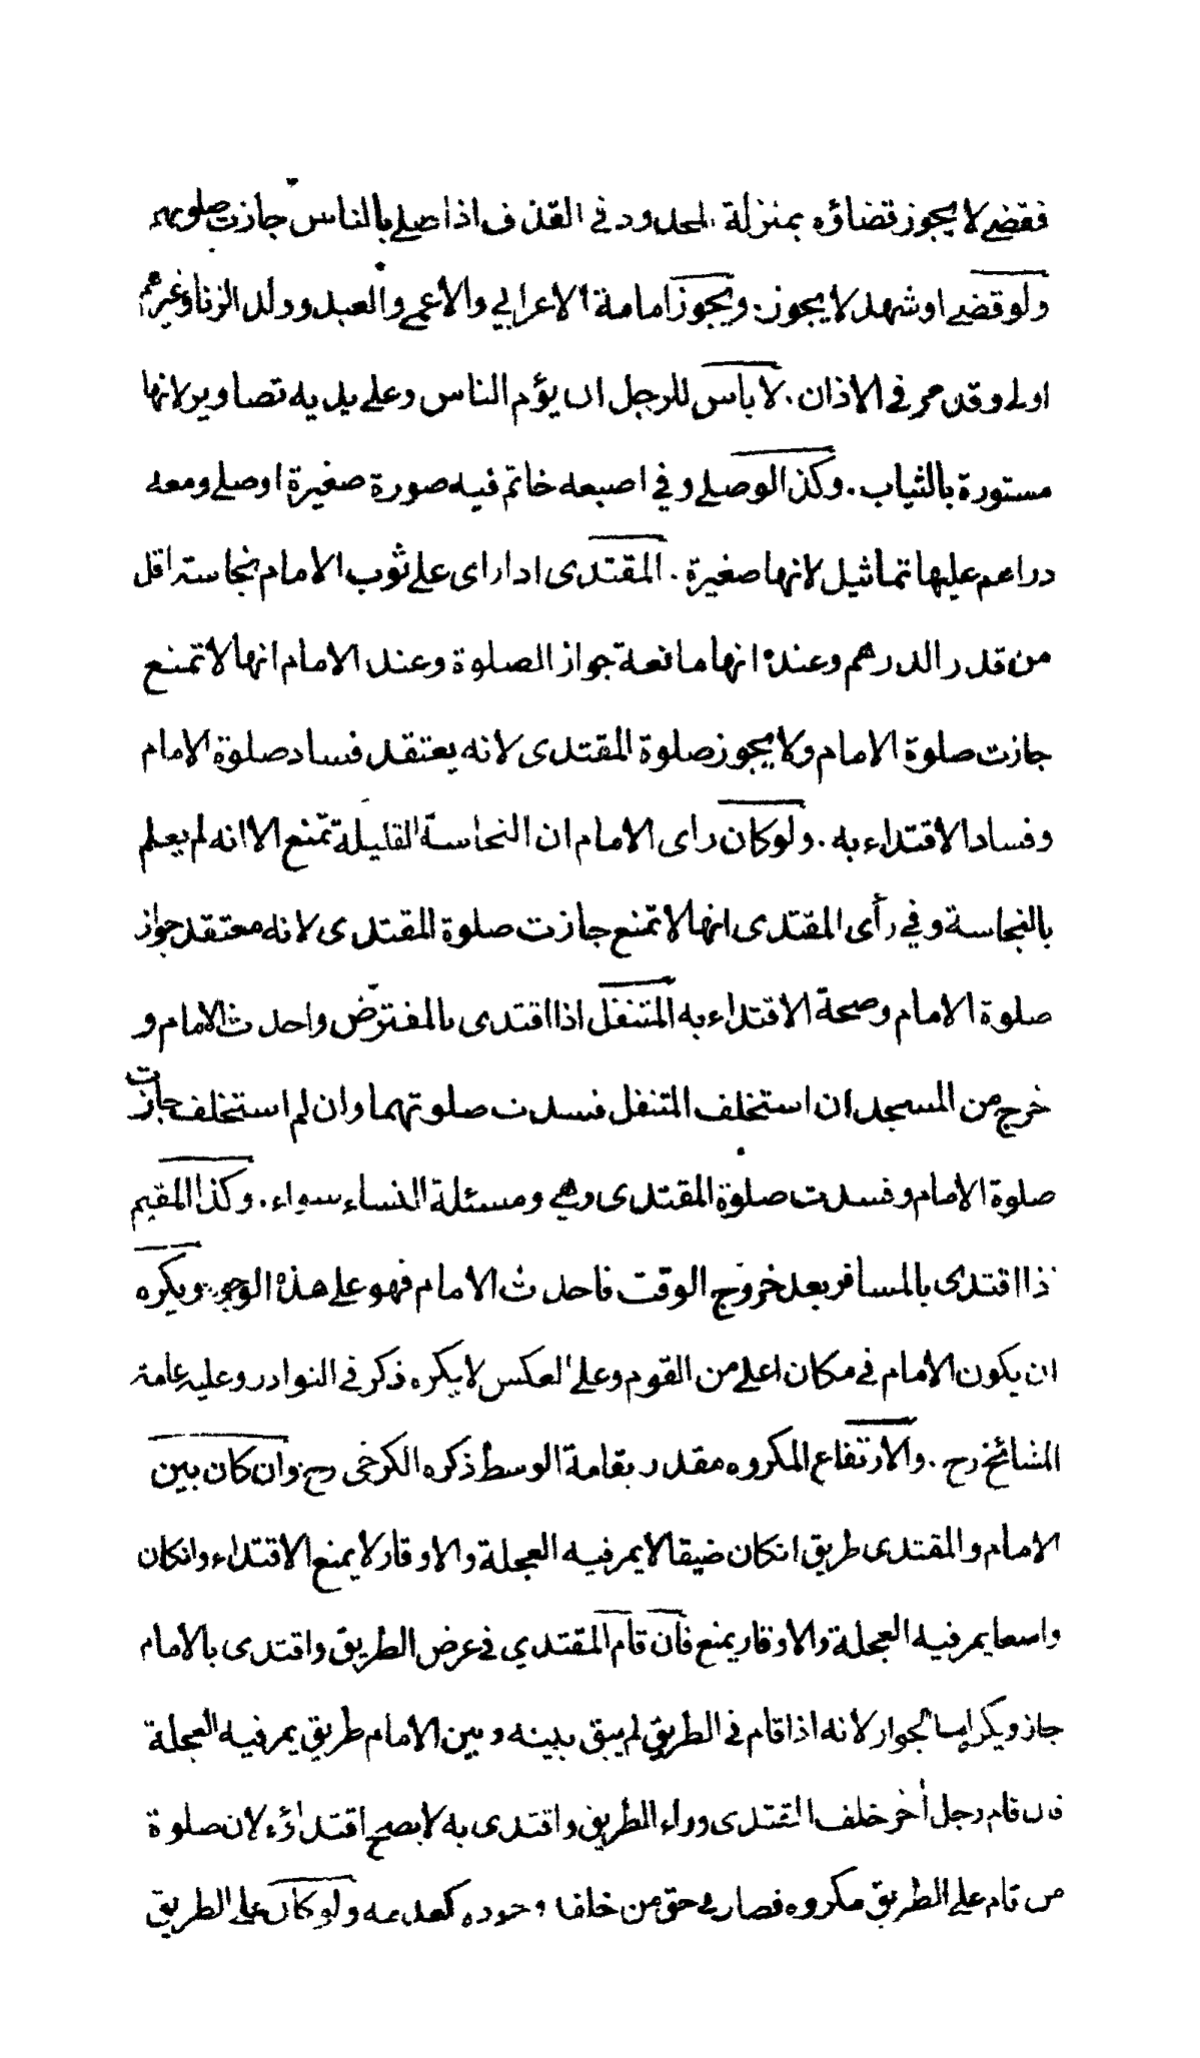 فقضى لا يجوز قضاؤه بمنزلة المحدود في القذف اذا صلى بالناس جازت صلوتهم
ولو قضى او شهد لا يجوز. ويجوز امامة الاعرابي والاعمى والعبد وولد الزنا وغيرهم
اولى وقد مر في الاذان. لا باس للرجل ان يؤم الناس وعلى يديه تصاوير لانها
مستورة بالثياب. وكذا لو صلى وفي اصبعه خاتم فيه صورة صغيرة او صلى ومعه
دراهم عليها تماثيل لانها صغيرة. المقتدى اذا راى على ثوب الامام نجاسة اقل
من قدر الدرهم وعنده انها مانعة جواز الصلوة وعند الامام انها لا تمنع
جازت صلوة الامام ولا يجوز صلوة المقتدى لانه يعتقد فساد صلوة الامام
وفساد الاقتداء به. ولو كان راى الامام ان النجاسة القليلة تمنع الا انه لم يعلم
بالنجاسة وفي رأى المقتدى انها لا تمنع جازت صلوة المقتدى لانه معتقد جواز
صلوة الامام وصحة الاقتداء به المتنفل اذا اقتدى بالمفترض واحدث الامام و
خرج من المسجد ان استخلف المتنفل فسدت صلوتهما وان لم استخلف جازت
صلوة الامام وفسدت صلوة المقتدى وهي ومسئلة النساء سواء. وكذا المقيم
اذا اقتدى بالمسافر بعد خروج الوقت فاحدث الامام فهو على هذه الوجوه ويكره
ان يكون الامام في مكان اعلى من القوم وعلى العكس لا يكره ذكر في النوادر وعليه عامة
المشائخ رح. والارتفاع المكروه مقدر بقامة الوسط ذكره الكرخى رح وان كان بين
الامام والمقتدى طريق انكان ضيقا لا يمر فيه العجلة والاوقار لا يمنع الاقتداء وانكان
واسعا يمر فيه العجلة والاوقار يمنع فان قام المقتدي في عرض الطريق واقتدى بالامام
جاز ويكره الجواز لانه اذا قام في الطريق لم يبق بينه وبين الامام طريق يمر فيه العجلة
فان قام رجل أخر خلف المقتدى وراء الطريق واقتدى به لا يصح اقتداؤه لان صلوة
من قام على الطريق مكروه فصار في حق من خلفه وجوده كعدمه ولو كان على الطريق